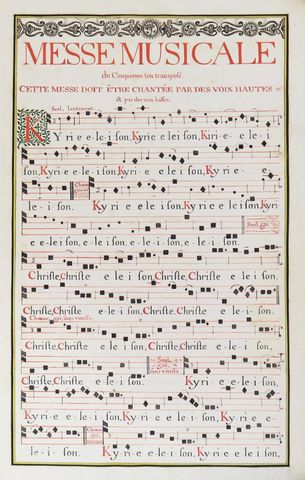 MESSE MUSICALE
du Cinquième ton transposé.
CETTE MESSE DOIT ÊTRE CHANTÉE PAR DES VOIX HAUTES
& par des voix basses.
Seul, lentement.
KYrie e-le-i son, Kyrie e lei son, Kiri-e e le-i
son, Kyri e e lei son, Kyri e e lei son, Kyri e-
le-i son. Kyri e e leison, Kyri e e leison, Kyri
e e-le-i son, e-le-i son, e-le-i son, e-le-i son.
Christe, Christe e le i son, Christe, Christe e le i son,
Christe, Christe e le i son, Christe, Christe e lei son.
Christe, Christe e le i son, Christe, Christe e le i son,
Christe, Christe e le-i-son. Kyri-e e le i son,
Kyri-e e-le-i-son, Kyri e e le i son, Kyri e
le-i-son. Kyri e e leison, Kyri e e leison,